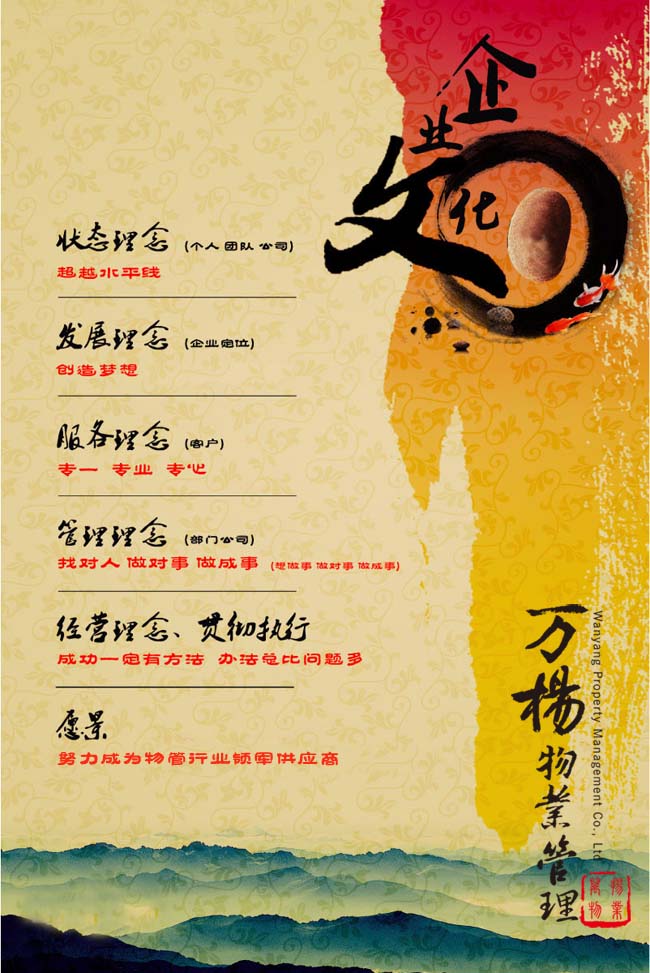 企业文化
状态理念 (个人 团队 公司)
超越水平线
发展理念 (企业定位)
创造梦想
服务理念 (客户)
专一 专业 专心
管理理念 (部门公司)
找对人 做对事 做成事 (想做事 做对事 做成事)
经营理念、贯彻执行
成功一定有方法 办法总比问题多
愿景
努力成为物管行业领军供应商
万楊物業管理
Wanyang Property Management Co., Ltd
萬楊物業